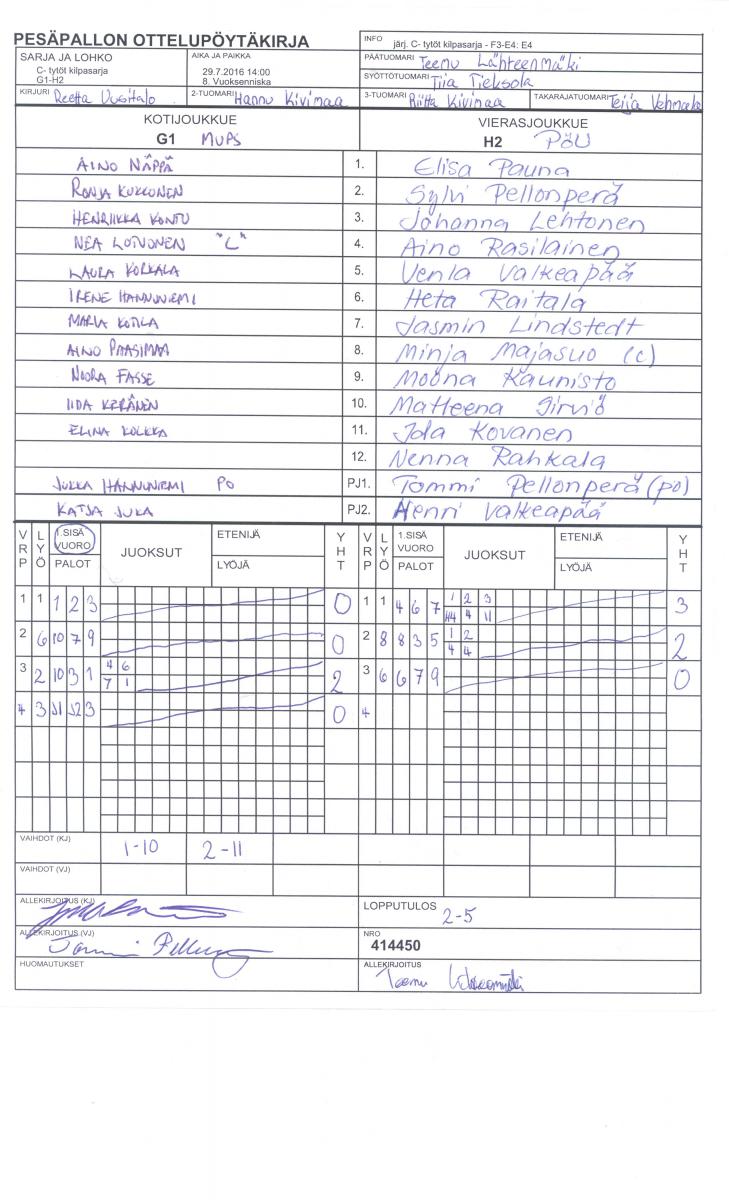 PESÄPALLON OTTELUPÖYTÄKIRJA
INFO järj. C- tytöt kilpasarja - F3-E4: E4
SARJA JA LOHKO
C- tytöt kilpasarja
G1-H2
AIKA JA PAIKKA
29.7.2016 14:00
8. Vuoksenniska
PÄÄTUOMARI Teemu Lähteenmäki
SYÖTTÖTUOMARI Tiia Tieksola
KIRJURI Reetta Uusitalo
2-TUOMARI Hannu Kivimaa
3-TUOMARI Riitta Kivimaa
TAKARAJATUOMARI Teija Vehmala
KOTIJOUKKUE
G1 MUPS
VIERASJOUKKUE
H2 PöU
AINO NÄPPÄ 1. Elisa Pauna
RONJA KUKKONEN 2. Sylvi Pellonperä
HENRIIKKA KONTU 3. Johanna Lehtonen
NEA LOIVONEN "C" 4. Aino Rasilainen
LAURA KORKALA 5. Venla Valkeapää
IRENE HANNUNIEMI 6. Heta Raitala
MARIA KOTILA 7. Jasmin Lindstedt
AINO PAASIMAA 8. Minja Majasuo (c)
NOORA FASSE 9. Moona Kaunisto
IIDA KERÄNEN 10. Matleena Sirviö
ELINA KOLKKA 11. Jola Kovanen
12. Nenna Rahkala
JUKKA HANNUNIEMI PO PJ1. Tommi Pellonperä (po)
KATJA JUKA PJ2. Henri Valkeapää
VRP LYÖ 1.SISÄ VUORO PALOT JUOKSUT ETENIJÄ LYÖJÄ YHT VRP LYÖ 1.SISÄ VUORO PALOT JUOKSUT ETENIJÄ LYÖJÄ YHT
1 1 1 2 3 0 1 1 4 6 7 1 2 3 4 11 3
2 6 10 7 9 0 2 8 8 3 5 1 2 4 4 2
3 2 10 3 1 4 6 7 1 2 3 6 6 7 9 0
4 3 11 12 3 0 4
VAIHDOT (KJ) 1-10 2-11
VAIHDOT (VJ)
ALLEKIRJOITUS (KJ)
LOPPUTULOS 2-5
ALLEKIRJOITUS (VJ)
NRO
414450
HUOMAUTUKSET
ALLEKIRJOITUS
Teemu